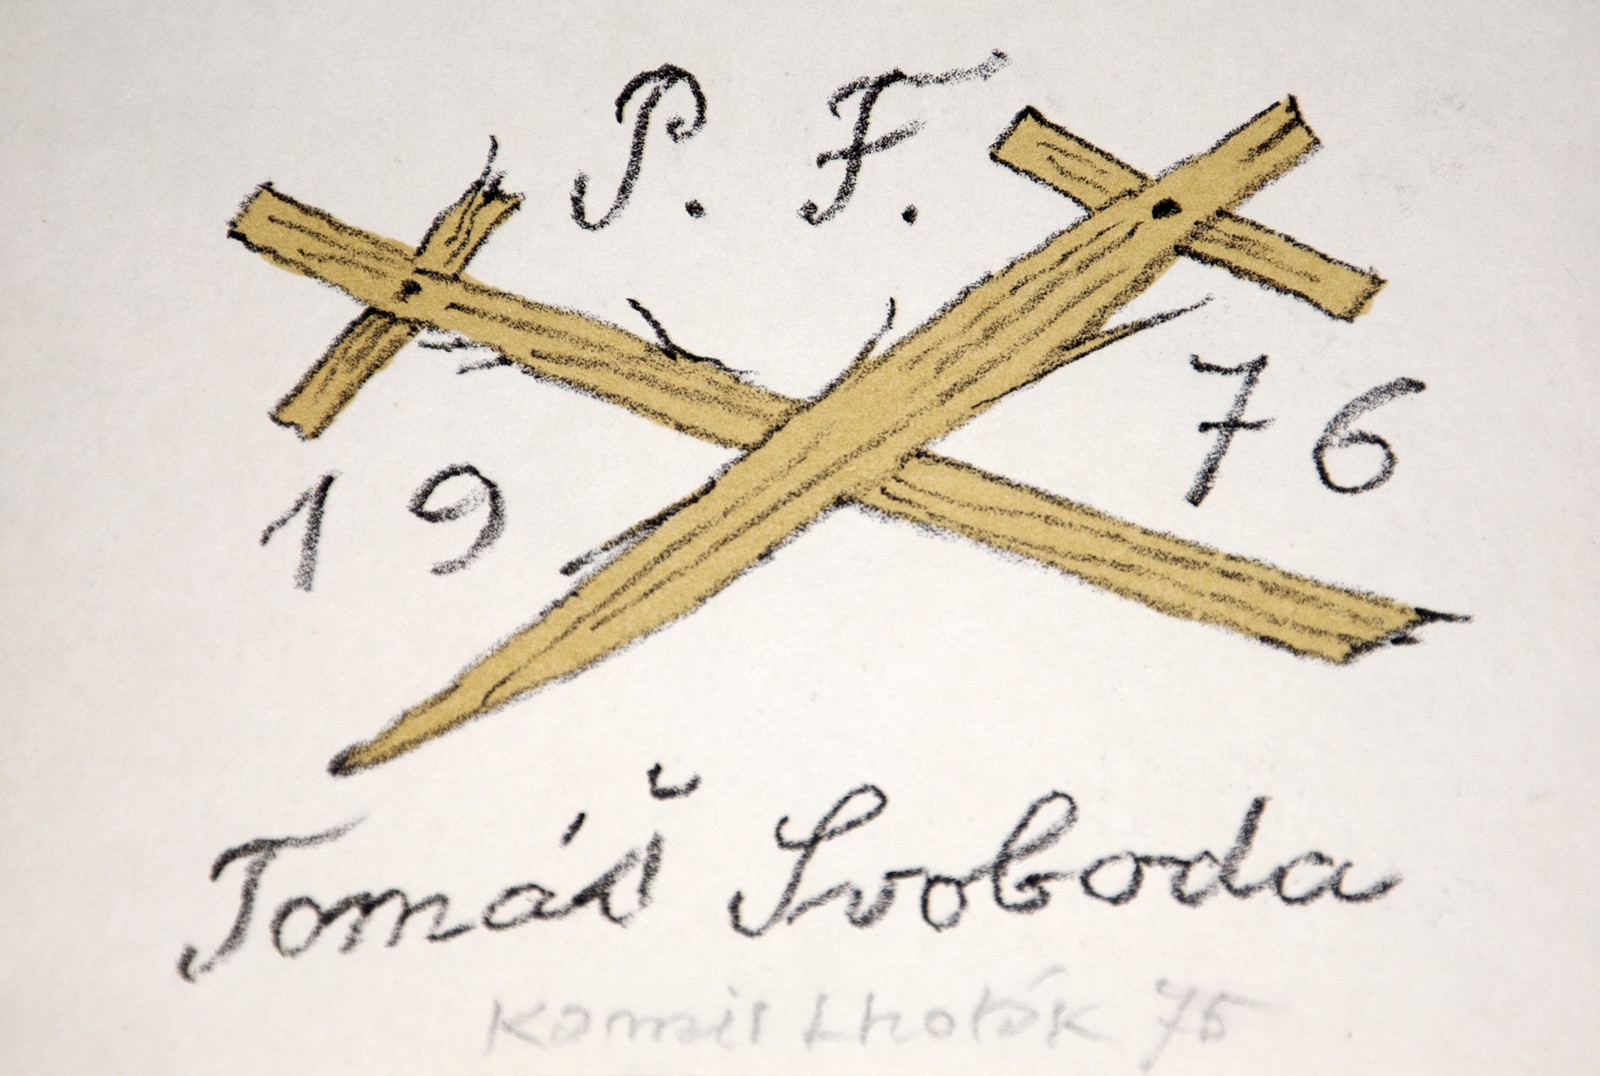 P. F.
19 76
Tomáš Svoboda
Kamil Lhoták 75